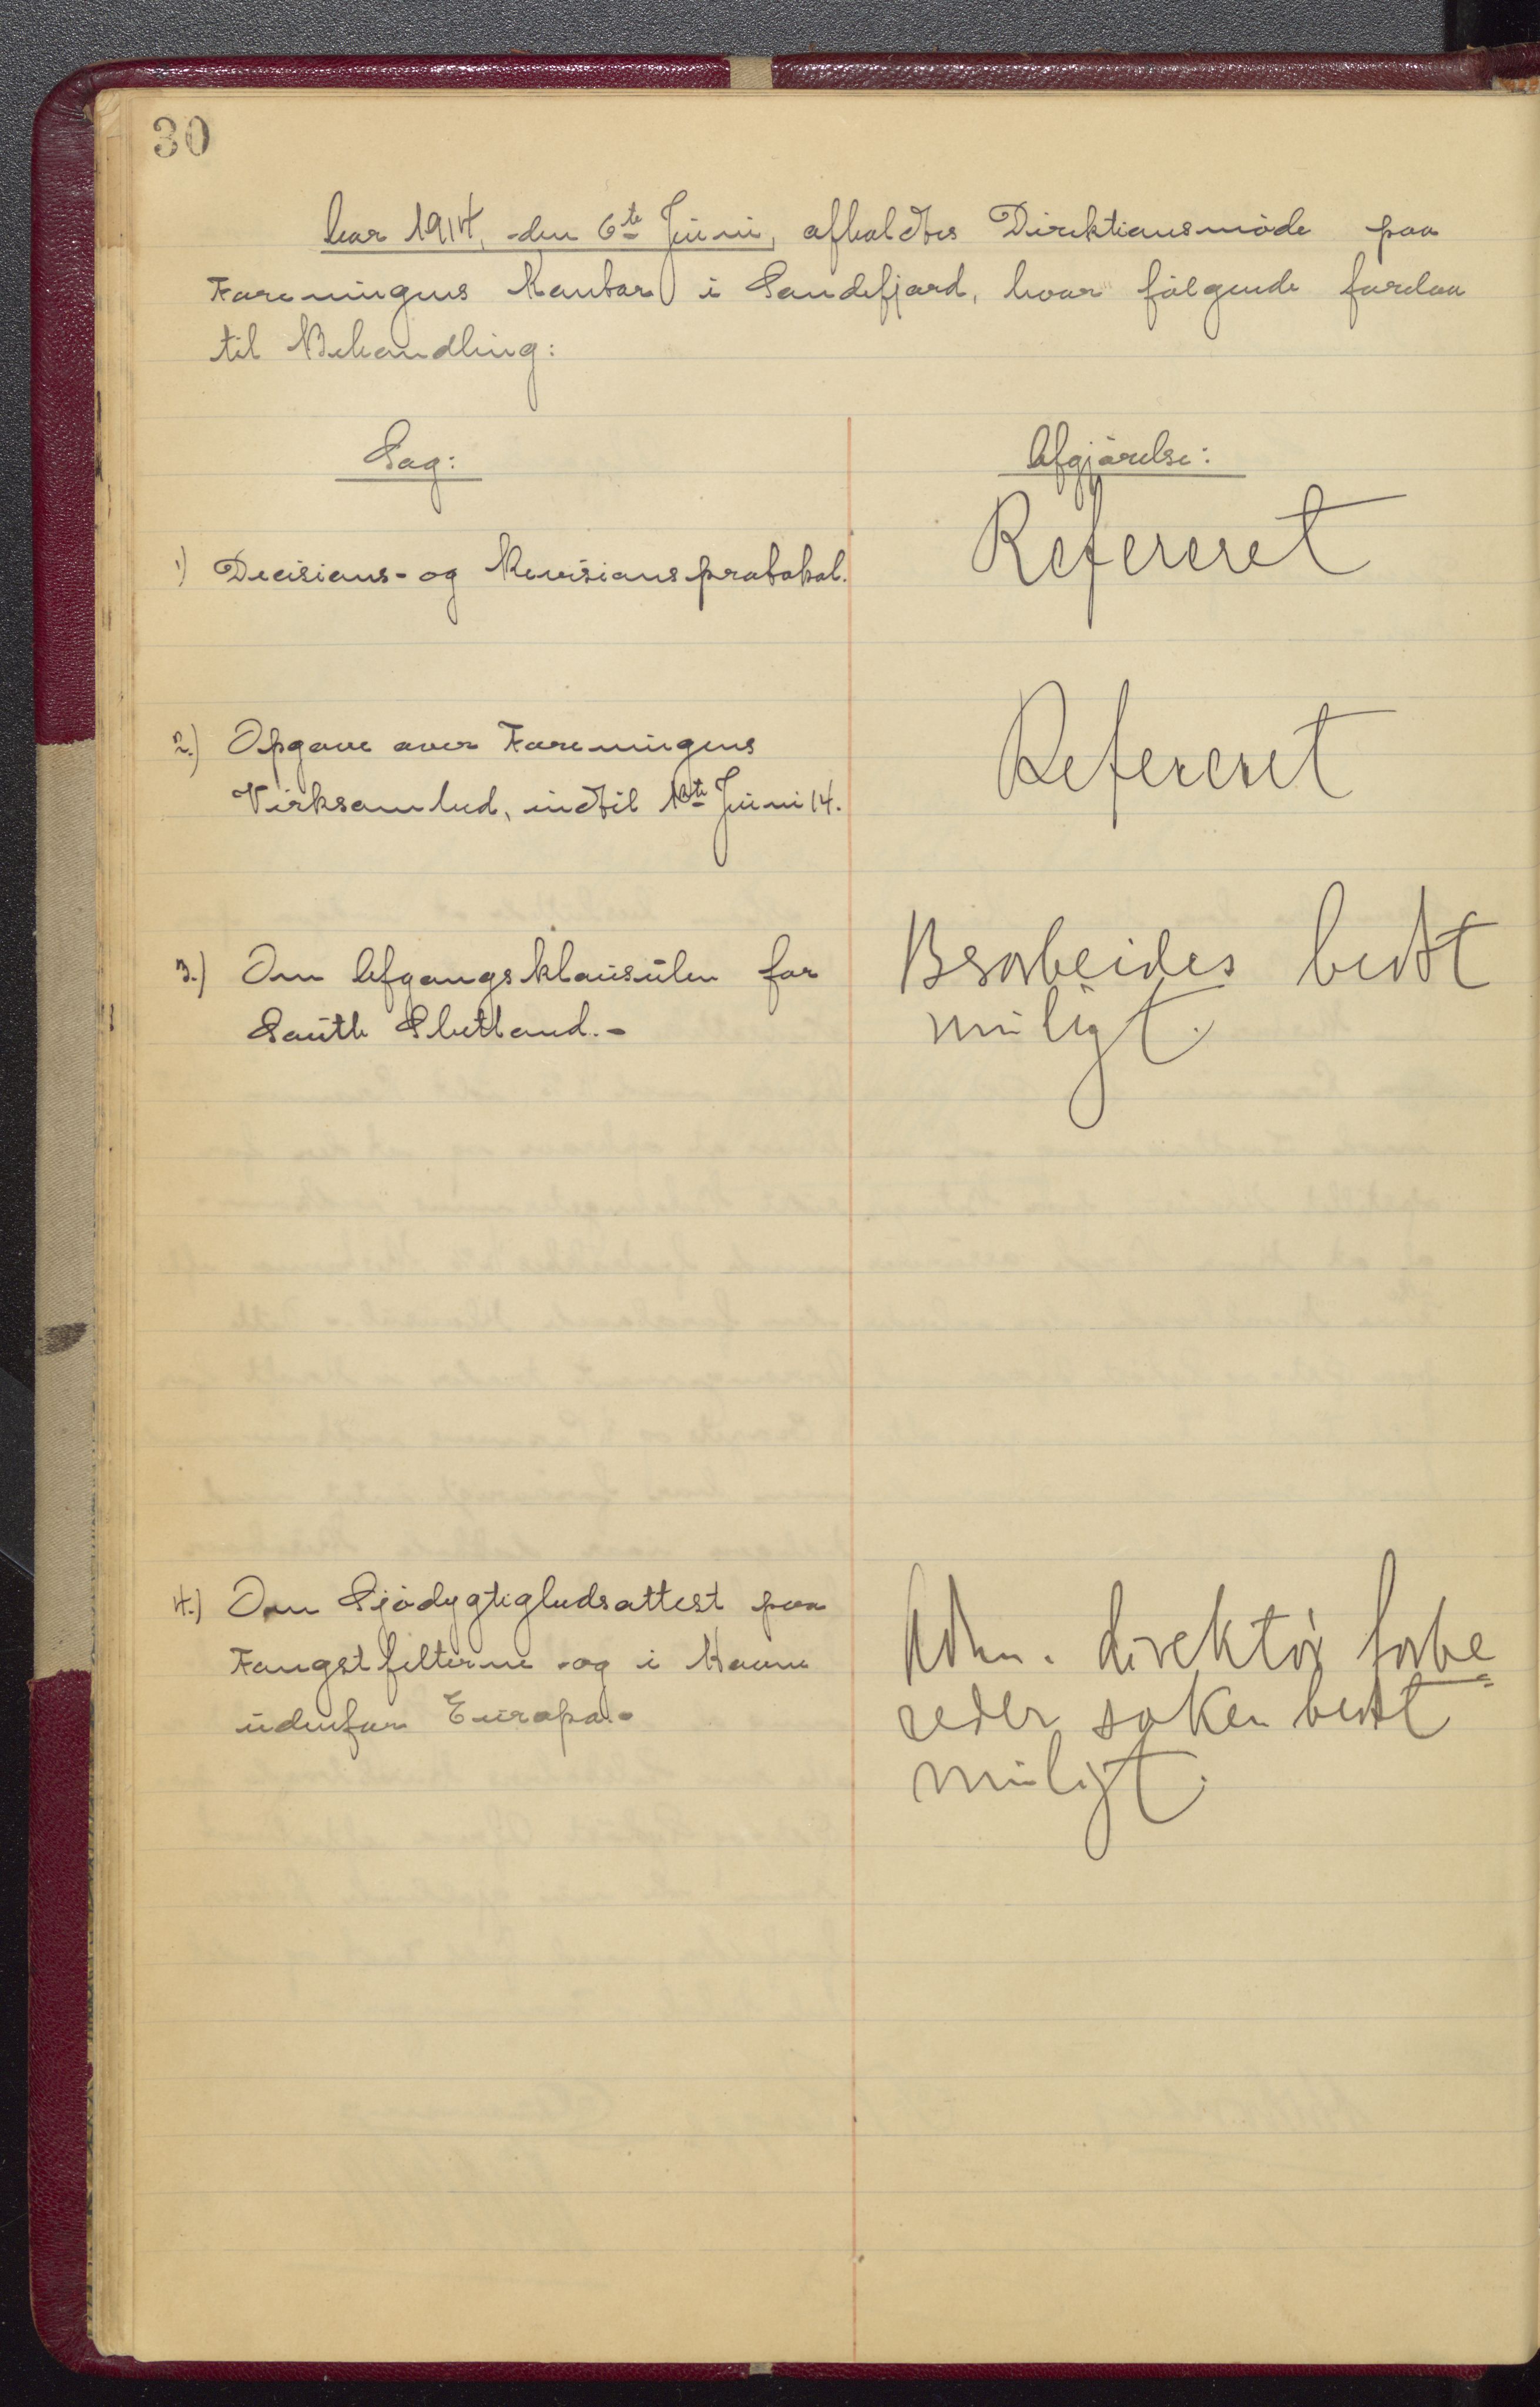 30
Aar 1914, den 6te Juni, afholdtes Direktionsmøde paa
Foreningens Kontor i Sandefjord, hvor følgende forelaa
til Behandling:
Sag:
Afgjørelse:
1) Decisions- og Revisionsprotokol.
Refereret
2.) Opgave over Foreningens
Virksomhed, indtil 1ste Juni 14.
Refereret
3.) Om Afgangsklausulen for
South Shetland.-
Bearbeides bedst
muligt.
4.) Om Sjødygtighedsattest paa
Fangstfelterne og i Havne
udenfor Europa.-
Adm. direktør forbe=
reder saken bedst
muligt.